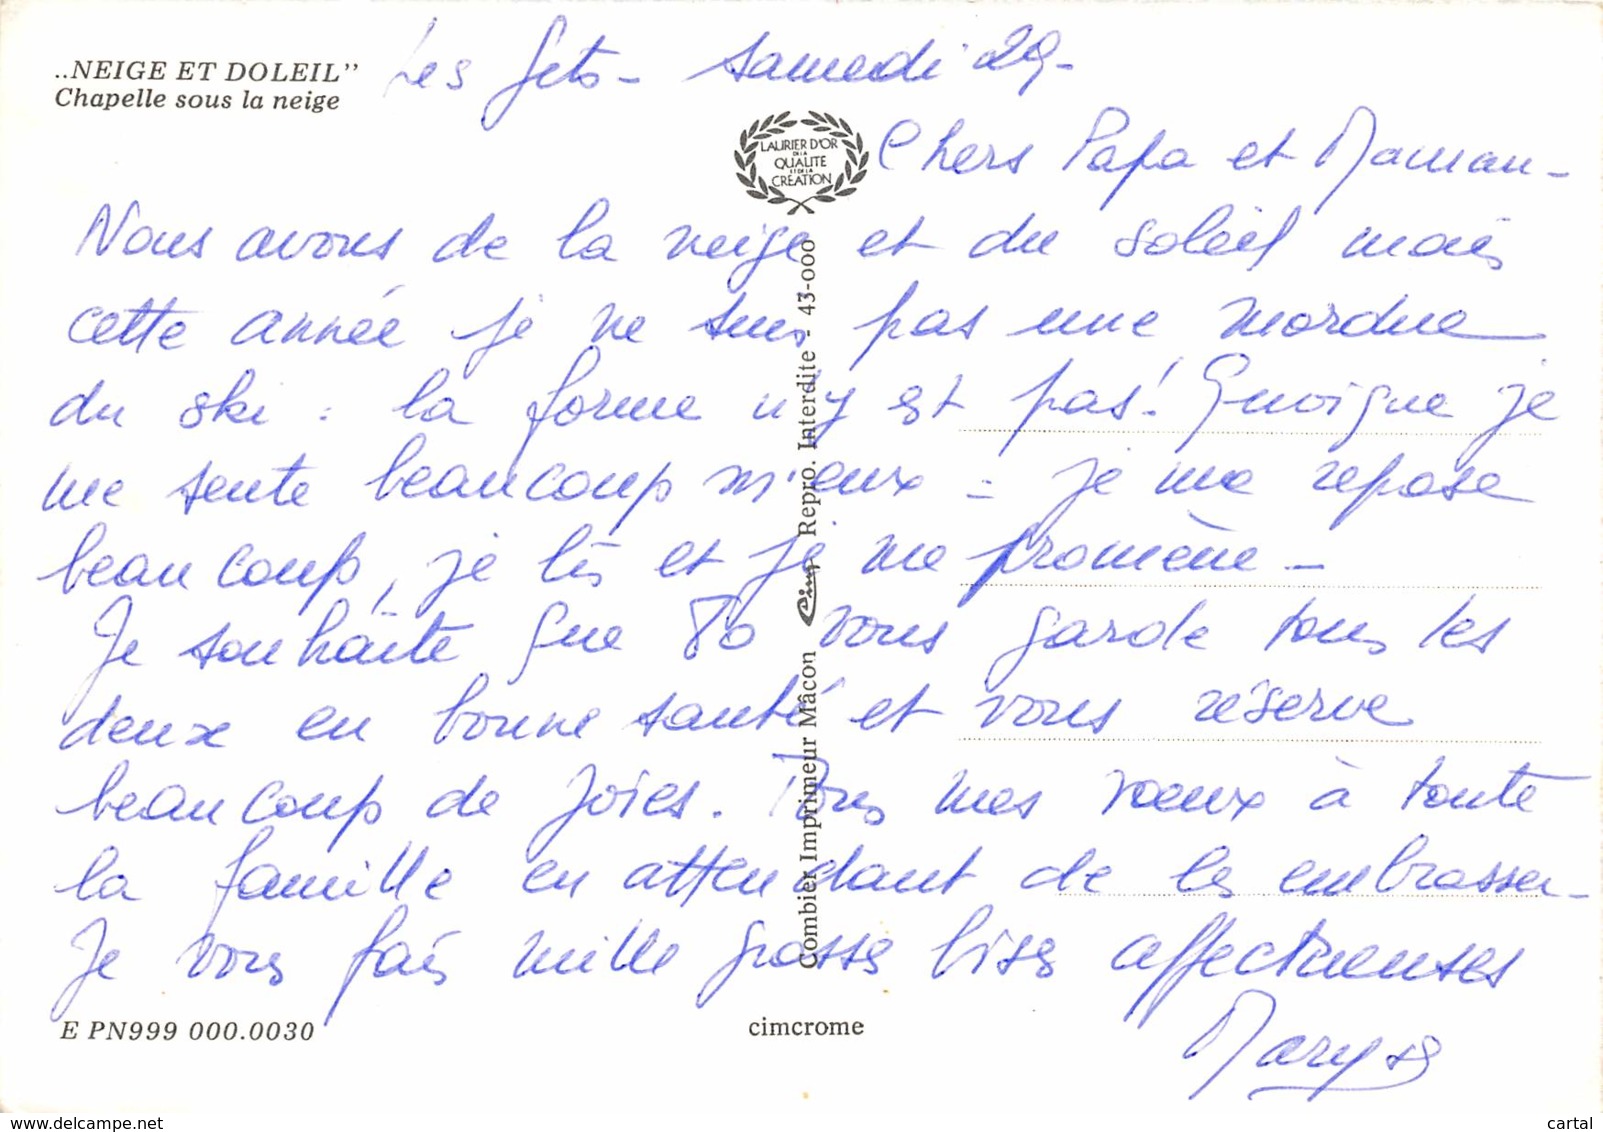 ..NEIGE ET DOLEIL"
Chapelle sous la neige
Les Gets - Samedi 29 -
LAURIER D'OR
DE LA
QUALITE
ET DE LA
CREATION
Chers Papa et Maman -
Nous avons de la neige et du soleil mais
cette année je ne suis pas une mordue
du ski : la forme n'y est pas! Quoique je
me sente beaucoup mieux - je me repose
beaucoup, je lis et je me promène -
Je souhaite que 80 vous garde tous les
deux en bonne santé et vous réserve
beaucoup de joies. Tous mes voeux à toute
la famille en attendant de les embrasser -
Je vous fais mille grosses bises affectueuses
Maryse
Combier Imprimeur Mâcon Cim Repro. Interdite - 43-000
E PN999 000.0030
cimcrome
www.delcampe.net
cartal